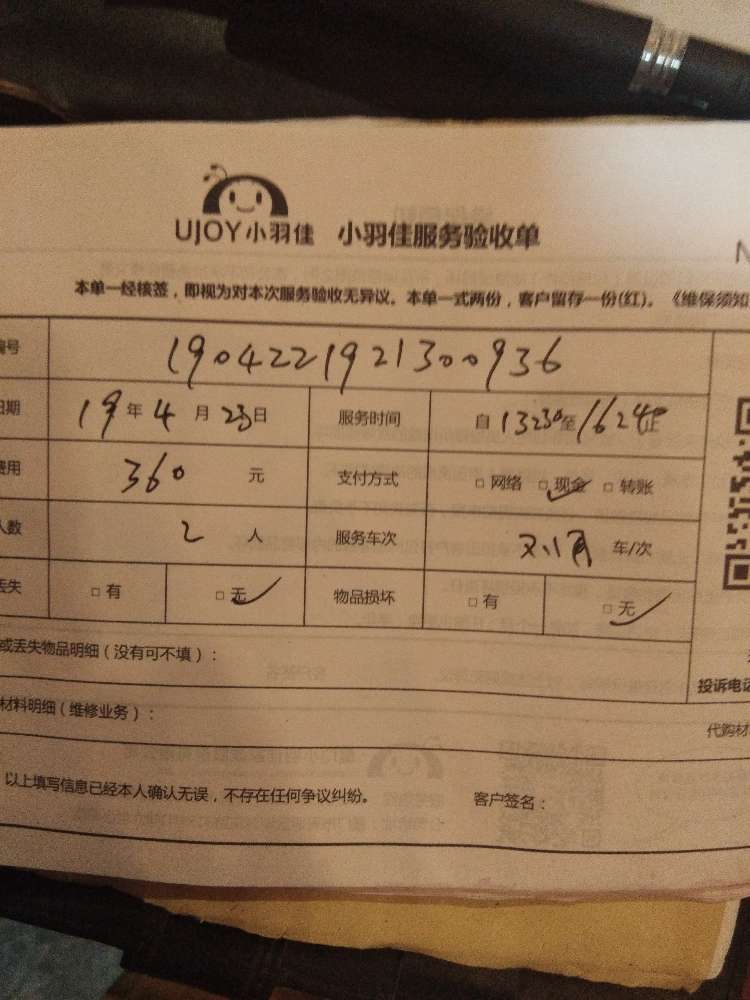 UJOY小羽佳 小羽佳服务验收单
本单一经核签，即视为对本次服务验收无异议。本单一式两份，客户留存一份(红)。《维保须知
编号 1904221921300936
日期 19年4月23日 服务时间 自1323至1624止
费用 360 元 支付方式 □网络 □现金 □转账
人数 2 人 服务车次 车/次
丢失 □有 □无 物品损坏 □有 □无
或丢失物品明细（没有可不填）：
材料明细（维修业务）： 投诉电话
代购材
以上填写信息已经本人确认无误，不存在任何争议纠纷。 客户签名：